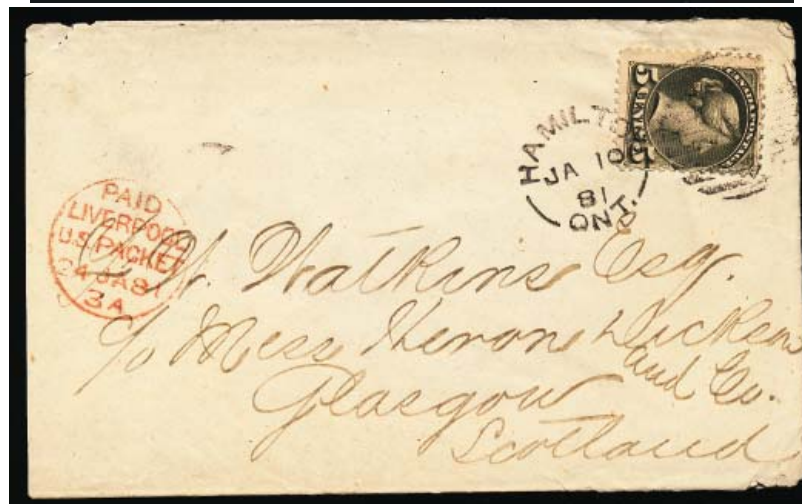 5 CENTS 5
HAMILTON
JA 10
81
ONT.
PAID
LIVERPOOL
U.S. PACKET
24 JA 81
3 A
W. Watkins Esq.
c/o Mess Heron Dickson
and Co.
Glasgow
Scotland